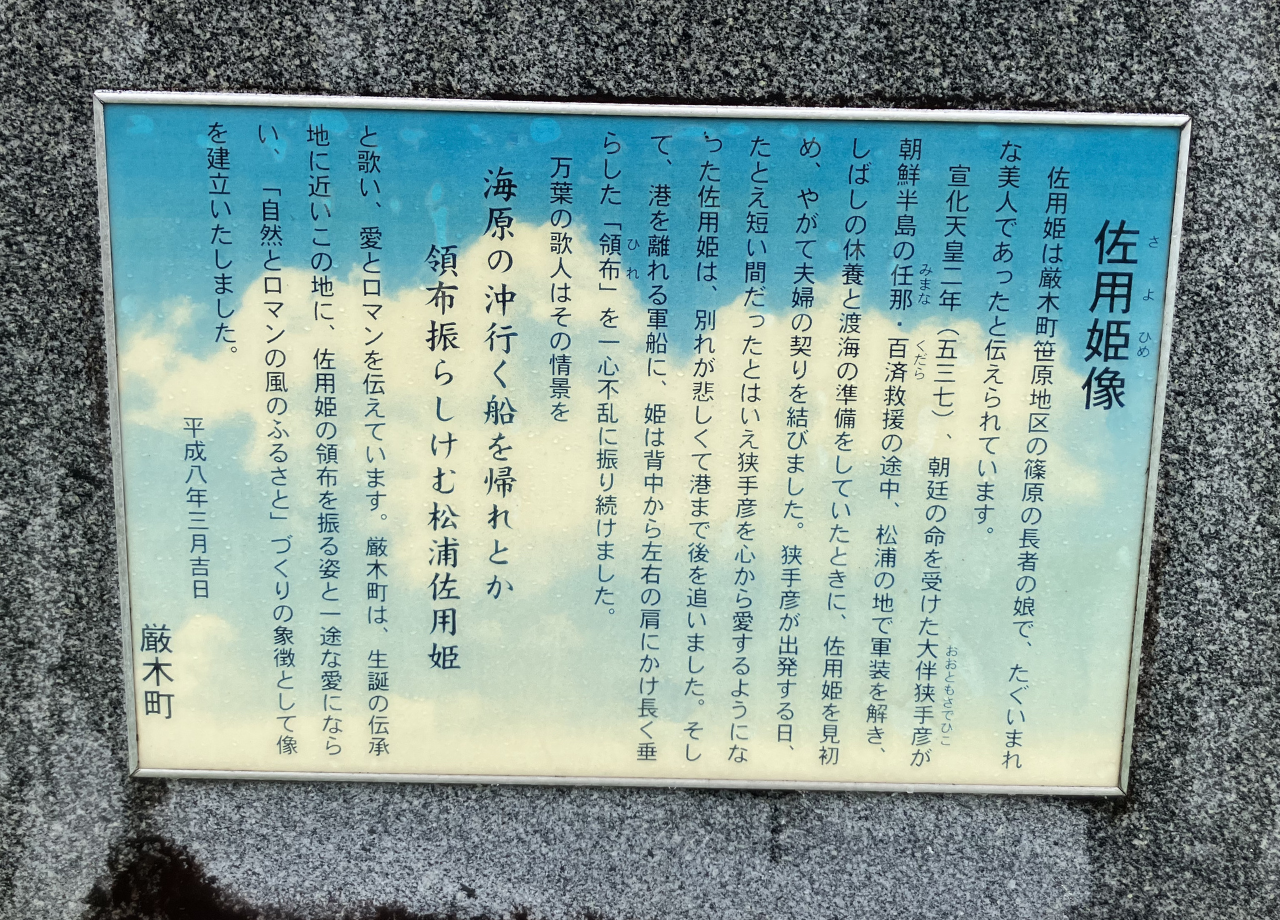 佐用姫像
さ よ ひめ
佐用姫は厳木町笹原地区の篠原の長者の娘で、たぐいまれ
な美人であったと伝えられています。
宣化天皇二年（五三七）、朝廷の命を受けた大伴狭手彦が
おおともさでひこ
朝鮮半島の任那・百済救援の途中、松浦の地で軍装を解き、
みまな くだら
しばしの休養と渡海の準備をしていたときに、佐用姫を見初
め、やがて夫婦の契りを結びました。狭手彦が出発する日、
たとえ短い間だったとはいえ狭手彦を心から愛するようにな
った佐用姫は、別れが悲しくて港まで後を追いました。そし
て、港を離れる軍船に、姫は背中から左右の肩にかけ長く垂
らした「領布」を一心不乱に振り続けました。
ひれ
万葉の歌人はその情景を
海原の沖行く船を帰れとか
領布振らしけむ松浦佐用姫
と歌い、愛とロマンを伝えています。厳木町は、生誕の伝承
地に近いこの地に、佐用姫の領布を振る姿と一途な愛になら
い、「自然とロマンの風のふるさと」づくりの象徴として像
を建立いたしました。
平成八年三月吉日
厳木町